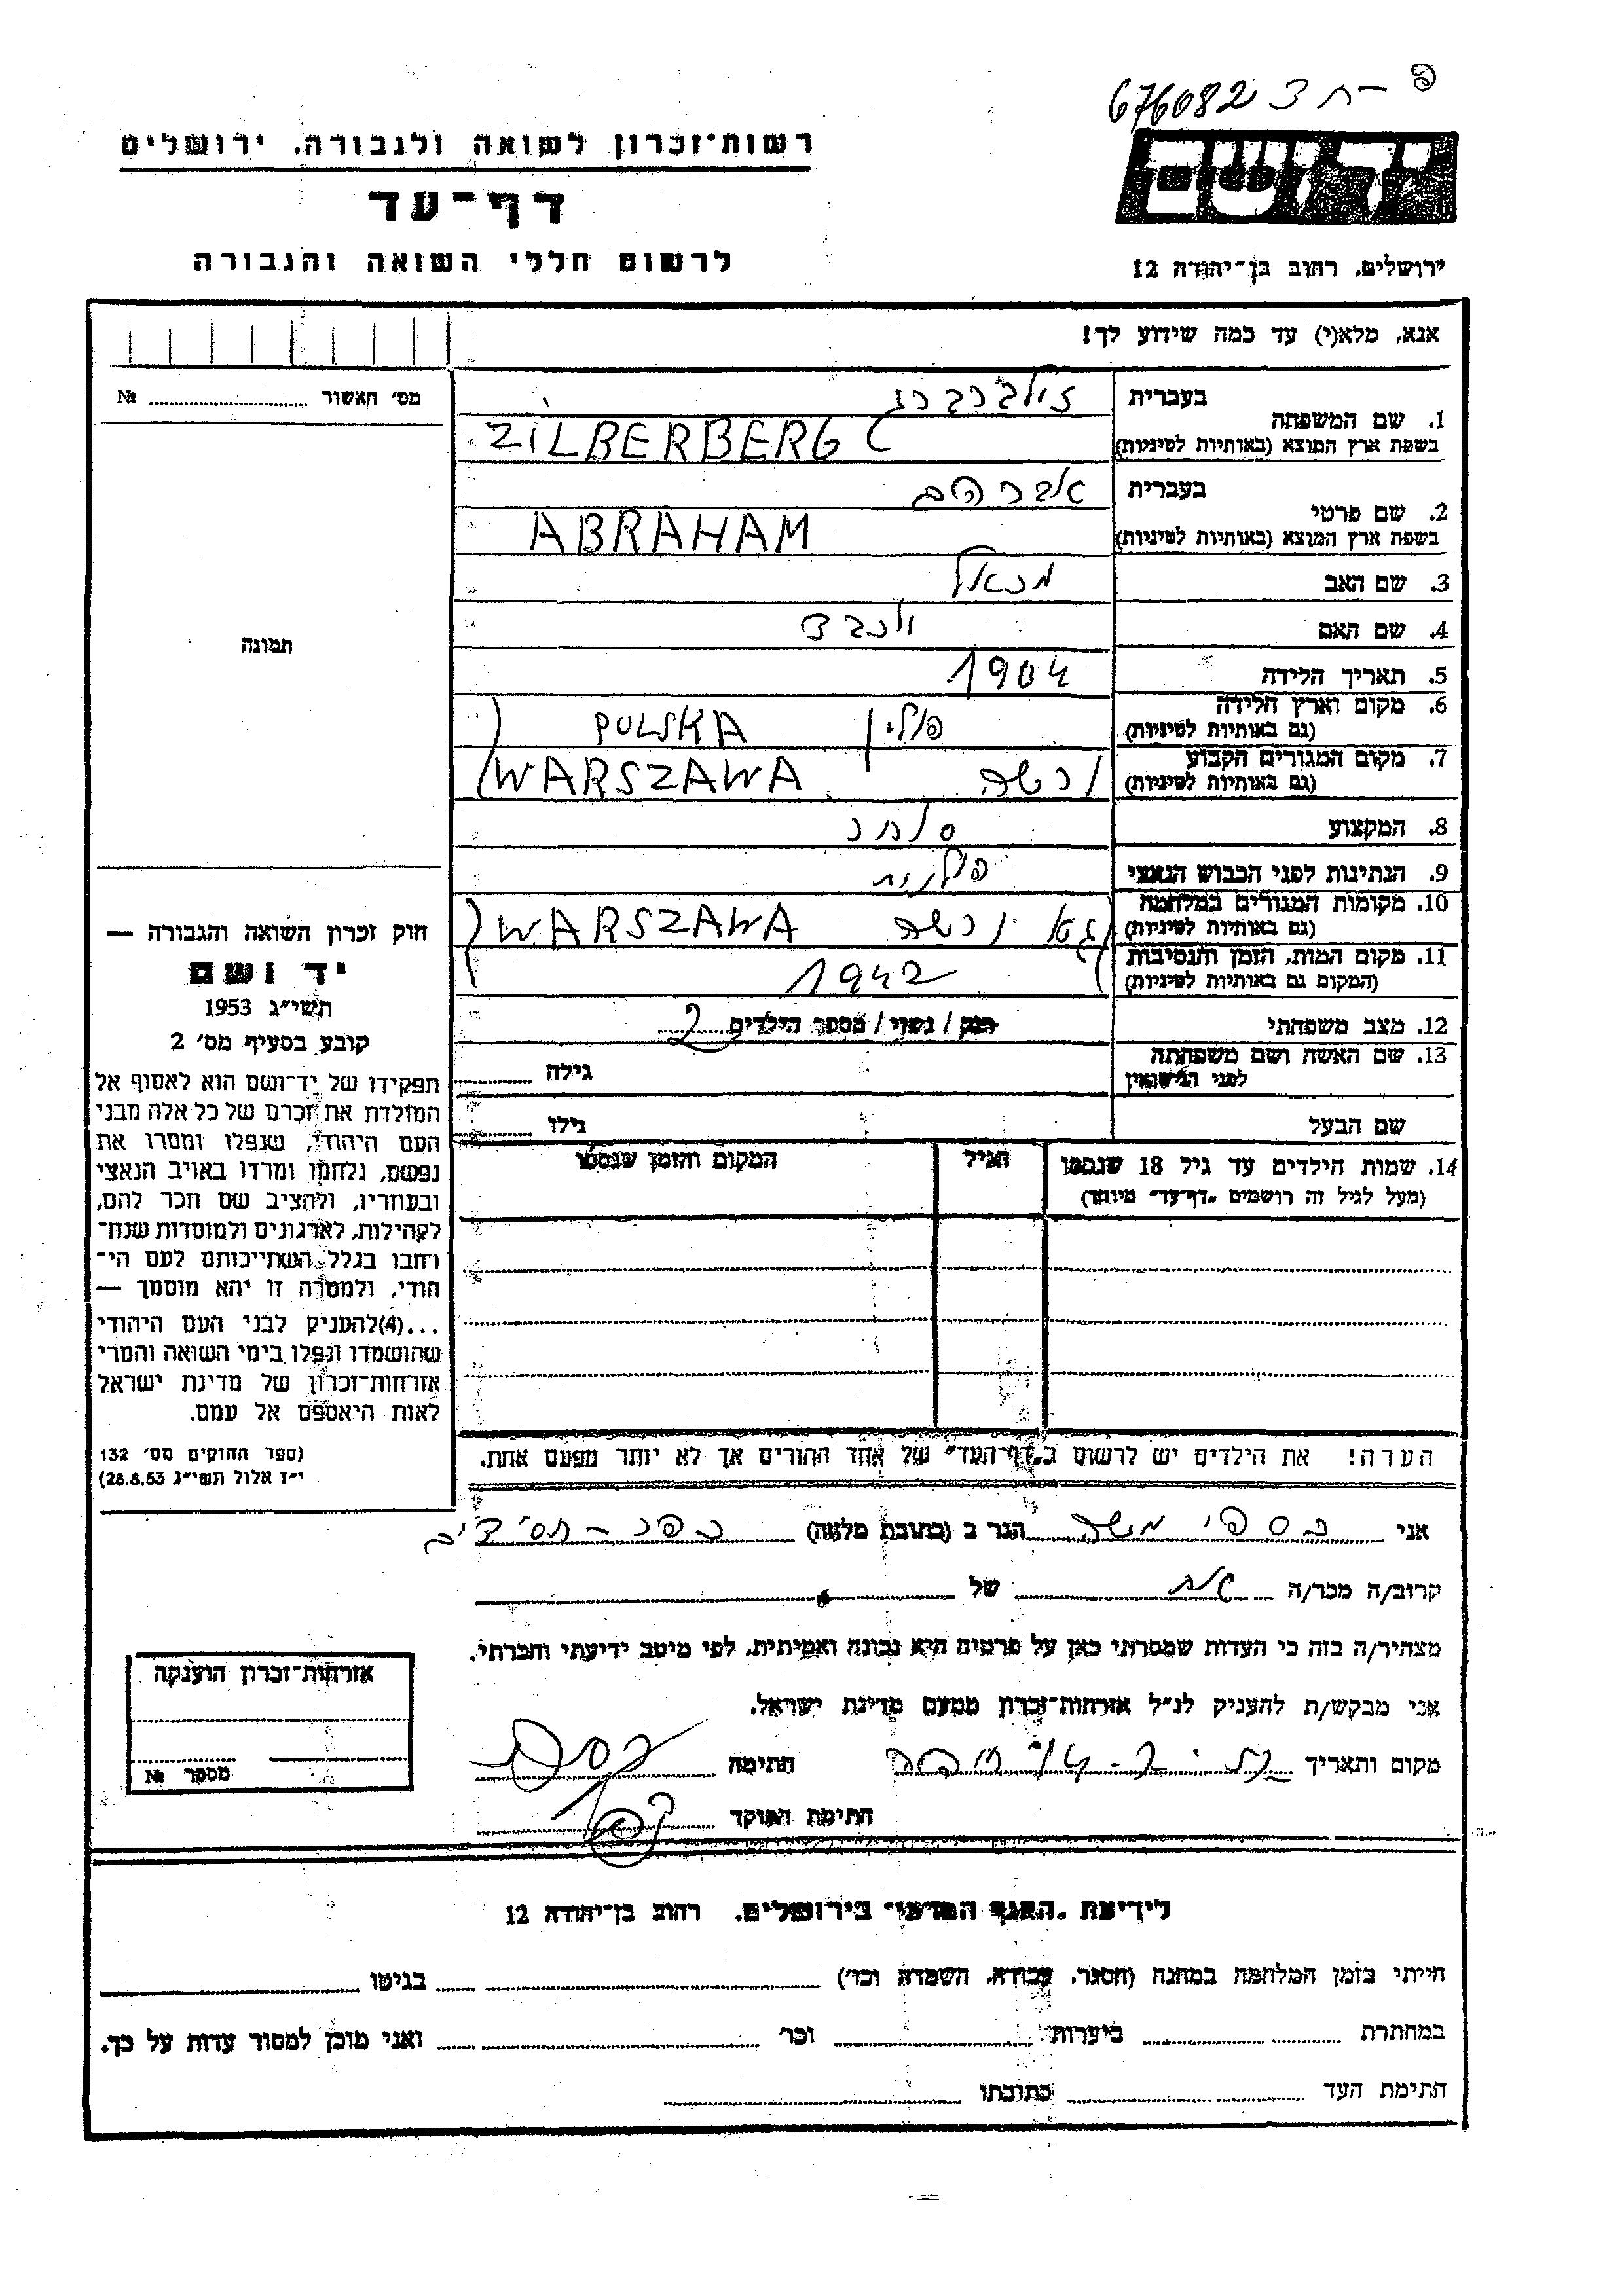 676082
רשות־זכרון לשואה ולגבורה, ירושלים
יד ושם
דף־עד
לרשום חללי השואה והגבורה
ירושלים, רחוב בן־יהודה 12
אנא, מלא(י) עד כמה שידוע לך!
מס׳ האשור № 
תמונה
חוק זכרון השואה והגבורה —
יד ושם
תשי״ג 1953
קובע בסעיף מס׳ 2
תפקידו של יד־ושם הוא לאסוף אל
המולדת את זכרם של כל אלה מבני
העם היהודי, שנפלו ומסרו את
נפשם, נלחמו ומרדו באויב הנאצי
ובעוזריו, ולהציב שם וזכר להם,
לקהילות, לארגונים ולמוסדות שנח־
רבו בגלל השתייכותם לעם הי־
הודי, ולמטרה זו יהא מוסמך —
...(4)להעניק לבני העם היהודי
שהושמדו ונפלו בימי השואה והמרי
אזרחות־זכרון של מדינת ישראל
לאות היאספם אל עמם.
(ספר החוקים מס׳ 132
י״ז אלול תשי״ג 28.8.53)
בעברית זילברברג
1. שם המשפחה
בשפת ארץ המוצא (באותיות לטיניות) ZILBERBERG
בעברית אברהם
2. שם פרטי
בשפת ארץ המוצא (באותיות לטיניות) ABRAHAM
3. שם האב
4. שם האם
5. תאריך הלידה 1904
6. מקום וארץ הלידה פולין POLSKA
(גם באותיות לטיניות)
7. מקום המגורים הקבוע ורשה WARSZAWA
(גם באותיות לטיניות)
8. המקצוע סוחר
9. הנתינות לפני הכבוש הנאצי פולנית
10. מקומות המגורים במלחמה ורשה WARSZAWA
(גם באותיות לטיניות)
11. מקום המות, הזמן והנסיבות 1942
(המקום גם באותיות לטיניות)
12. מצב משפחתי רווק / נשוי / מספר הילדים 2
13. שם האשה ושם משפחתה גילה
לפני הנישואין
שם הבעל גילו
14. שמות הילדים עד גיל 18 שנספו הגיל המקום והזמן שנספו
(מעל לגיל זה רושמים „דף־עד״ מיוחד)
הערה! את הילדים יש לרשום ב„דף־העד״ של אחד ההורים אך לא יותר מפעם אחת.
אני כספי משה הגר ב (כתובת מלאה) כפר־חסידים
קרוב/ה מכר/ה של
מצהיר/ה בזה כי העדות שמסרתי כאן על פרטיה היא נכונה ואמיתית, לפי מיטב ידיעתי והכרתי.
אני מבקש/ת להעניק לנ״ל אזרחות־זכרון מטעם מדינת ישראל.
מקום ותאריך חתימה
חתימת הפוקד
אזרחות־זכרון הוענקה
מספר №
לידיעת „הענף המדעי״ בירושלים, רחוב בן־יהודה 12
הייתי בזמן המלחמה במחנה (הסגר, עבודה, השמדה וכו׳) בגיטו
במחתרת ביערות וכו׳ ואני מוכן למסור עדות על כך.
חתימת העד כתובתו